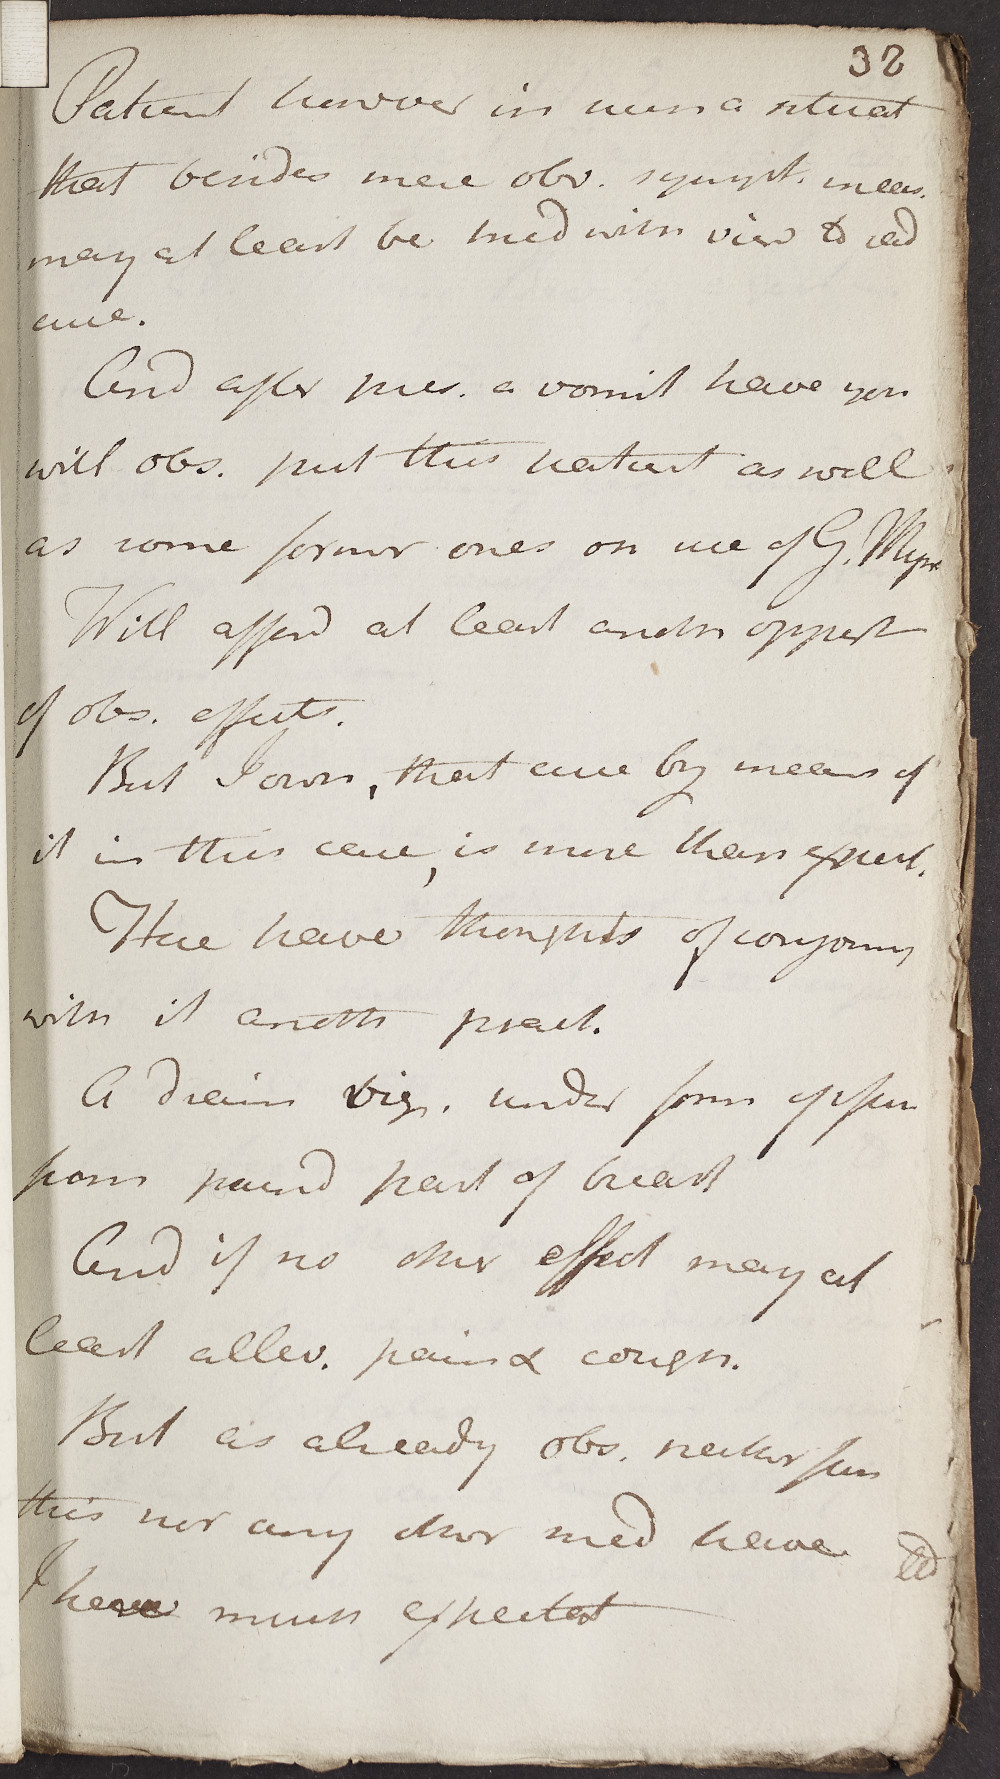 32
Patient however in such a situat
that besides mere obv. sympt. meas.
may at least be tried with view to rad
cure.
And after pres. a vomit have you
will obs. put this patient as well
as some former ones on use of G. Myrr
Will afford at least anothr opport
of obs. effects.
But I own, that cure by means of
it in this case, is more than expect.
Have have thoughts of conjoining
with it anothr pract.
A drain viz. under form of issue
from pained part of breast
And if no other effect may at
least allev. pain & cough.
But as already obs. neither from
this nor any other med have
I have much expectat